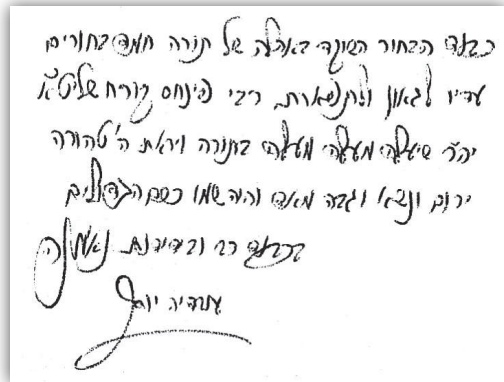 כבוד הבחור השוקד באהלה של תורה חמד בחורים
עדיו לגאון ולתפארת רבי פינחס קורח שליט"א
יה"ר שיעלה מעלה מעלה בתורה ויראת ה' טהורה
ירום ונשא וגבה מאד והיה שמו כשם הגדולים
בכבוד רב ובידידות נאמנה
עובדיה יוסף